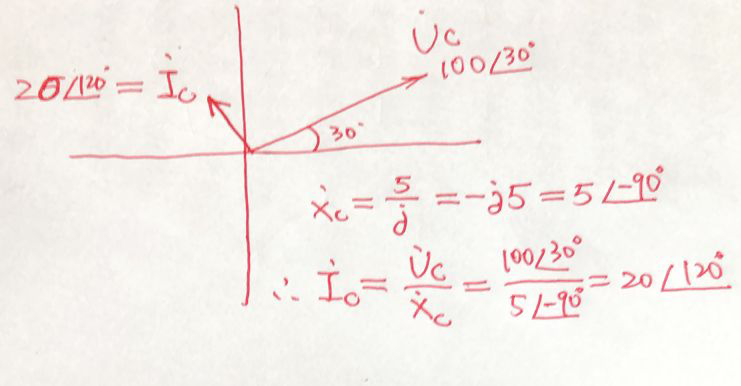 U̇c
100∠30°
20∠120° = İc
30°
ẋc = 5/j = -j5 = 5∠-90°
∴ İc = U̇c/Ẋc = 100∠30°/5∠-90° = 20∠120°